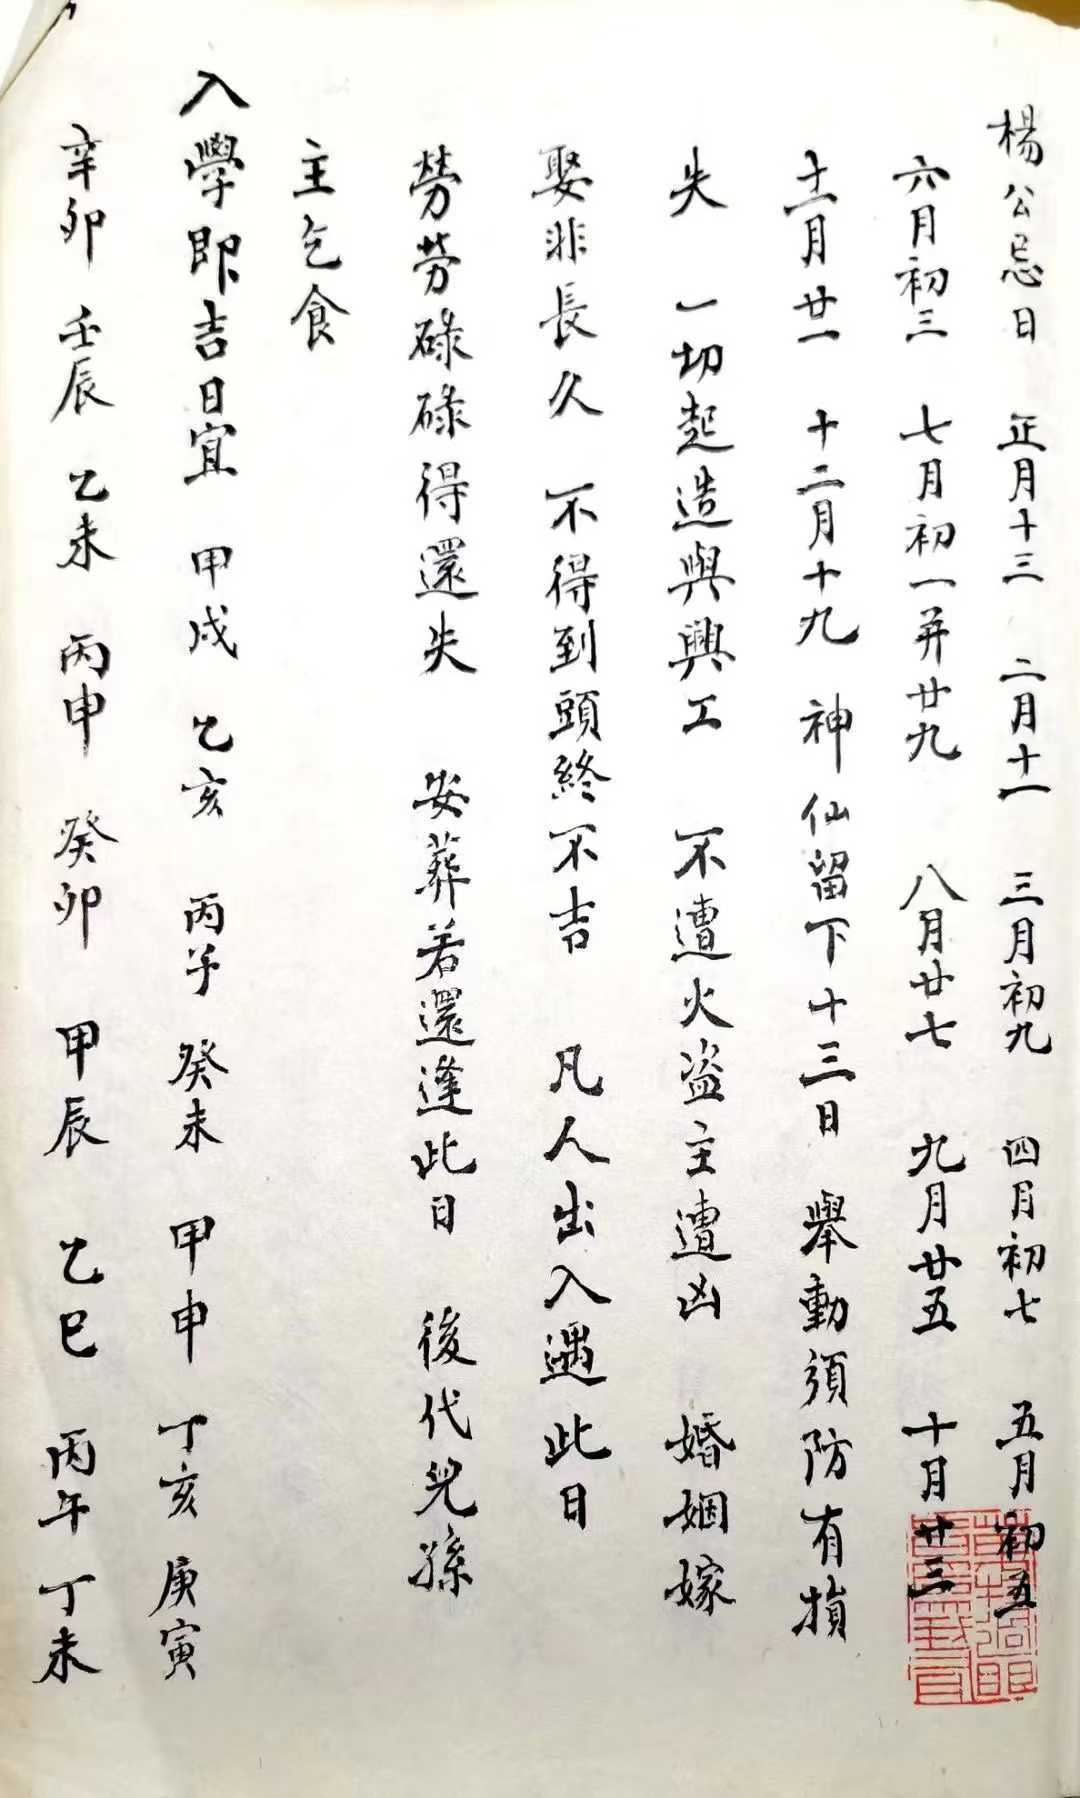 楊公忌日　正月十三　二月十一　三月初九　四月初七　五月初五
六月初三　七月初一并廿九　八月廿七　九月廿五　十月廿三
十一月廿一　十二月十九　神仙留下十三日　舉動須防有損
失　一切起造與興工　不遭火盗主遭凶　婚姻嫁
娶非長久　不得到頭終不吉　凡人出入遇此日
勞勞碌碌得還失　安葬若還逢此日　後代兒孫
主乞食
入學即吉日宜　甲戌　乙亥　丙子　癸未　甲申　丁亥　庚寅
辛卯　壬辰　乙未　丙申　癸卯　甲辰　乙巳　丙午　丁未